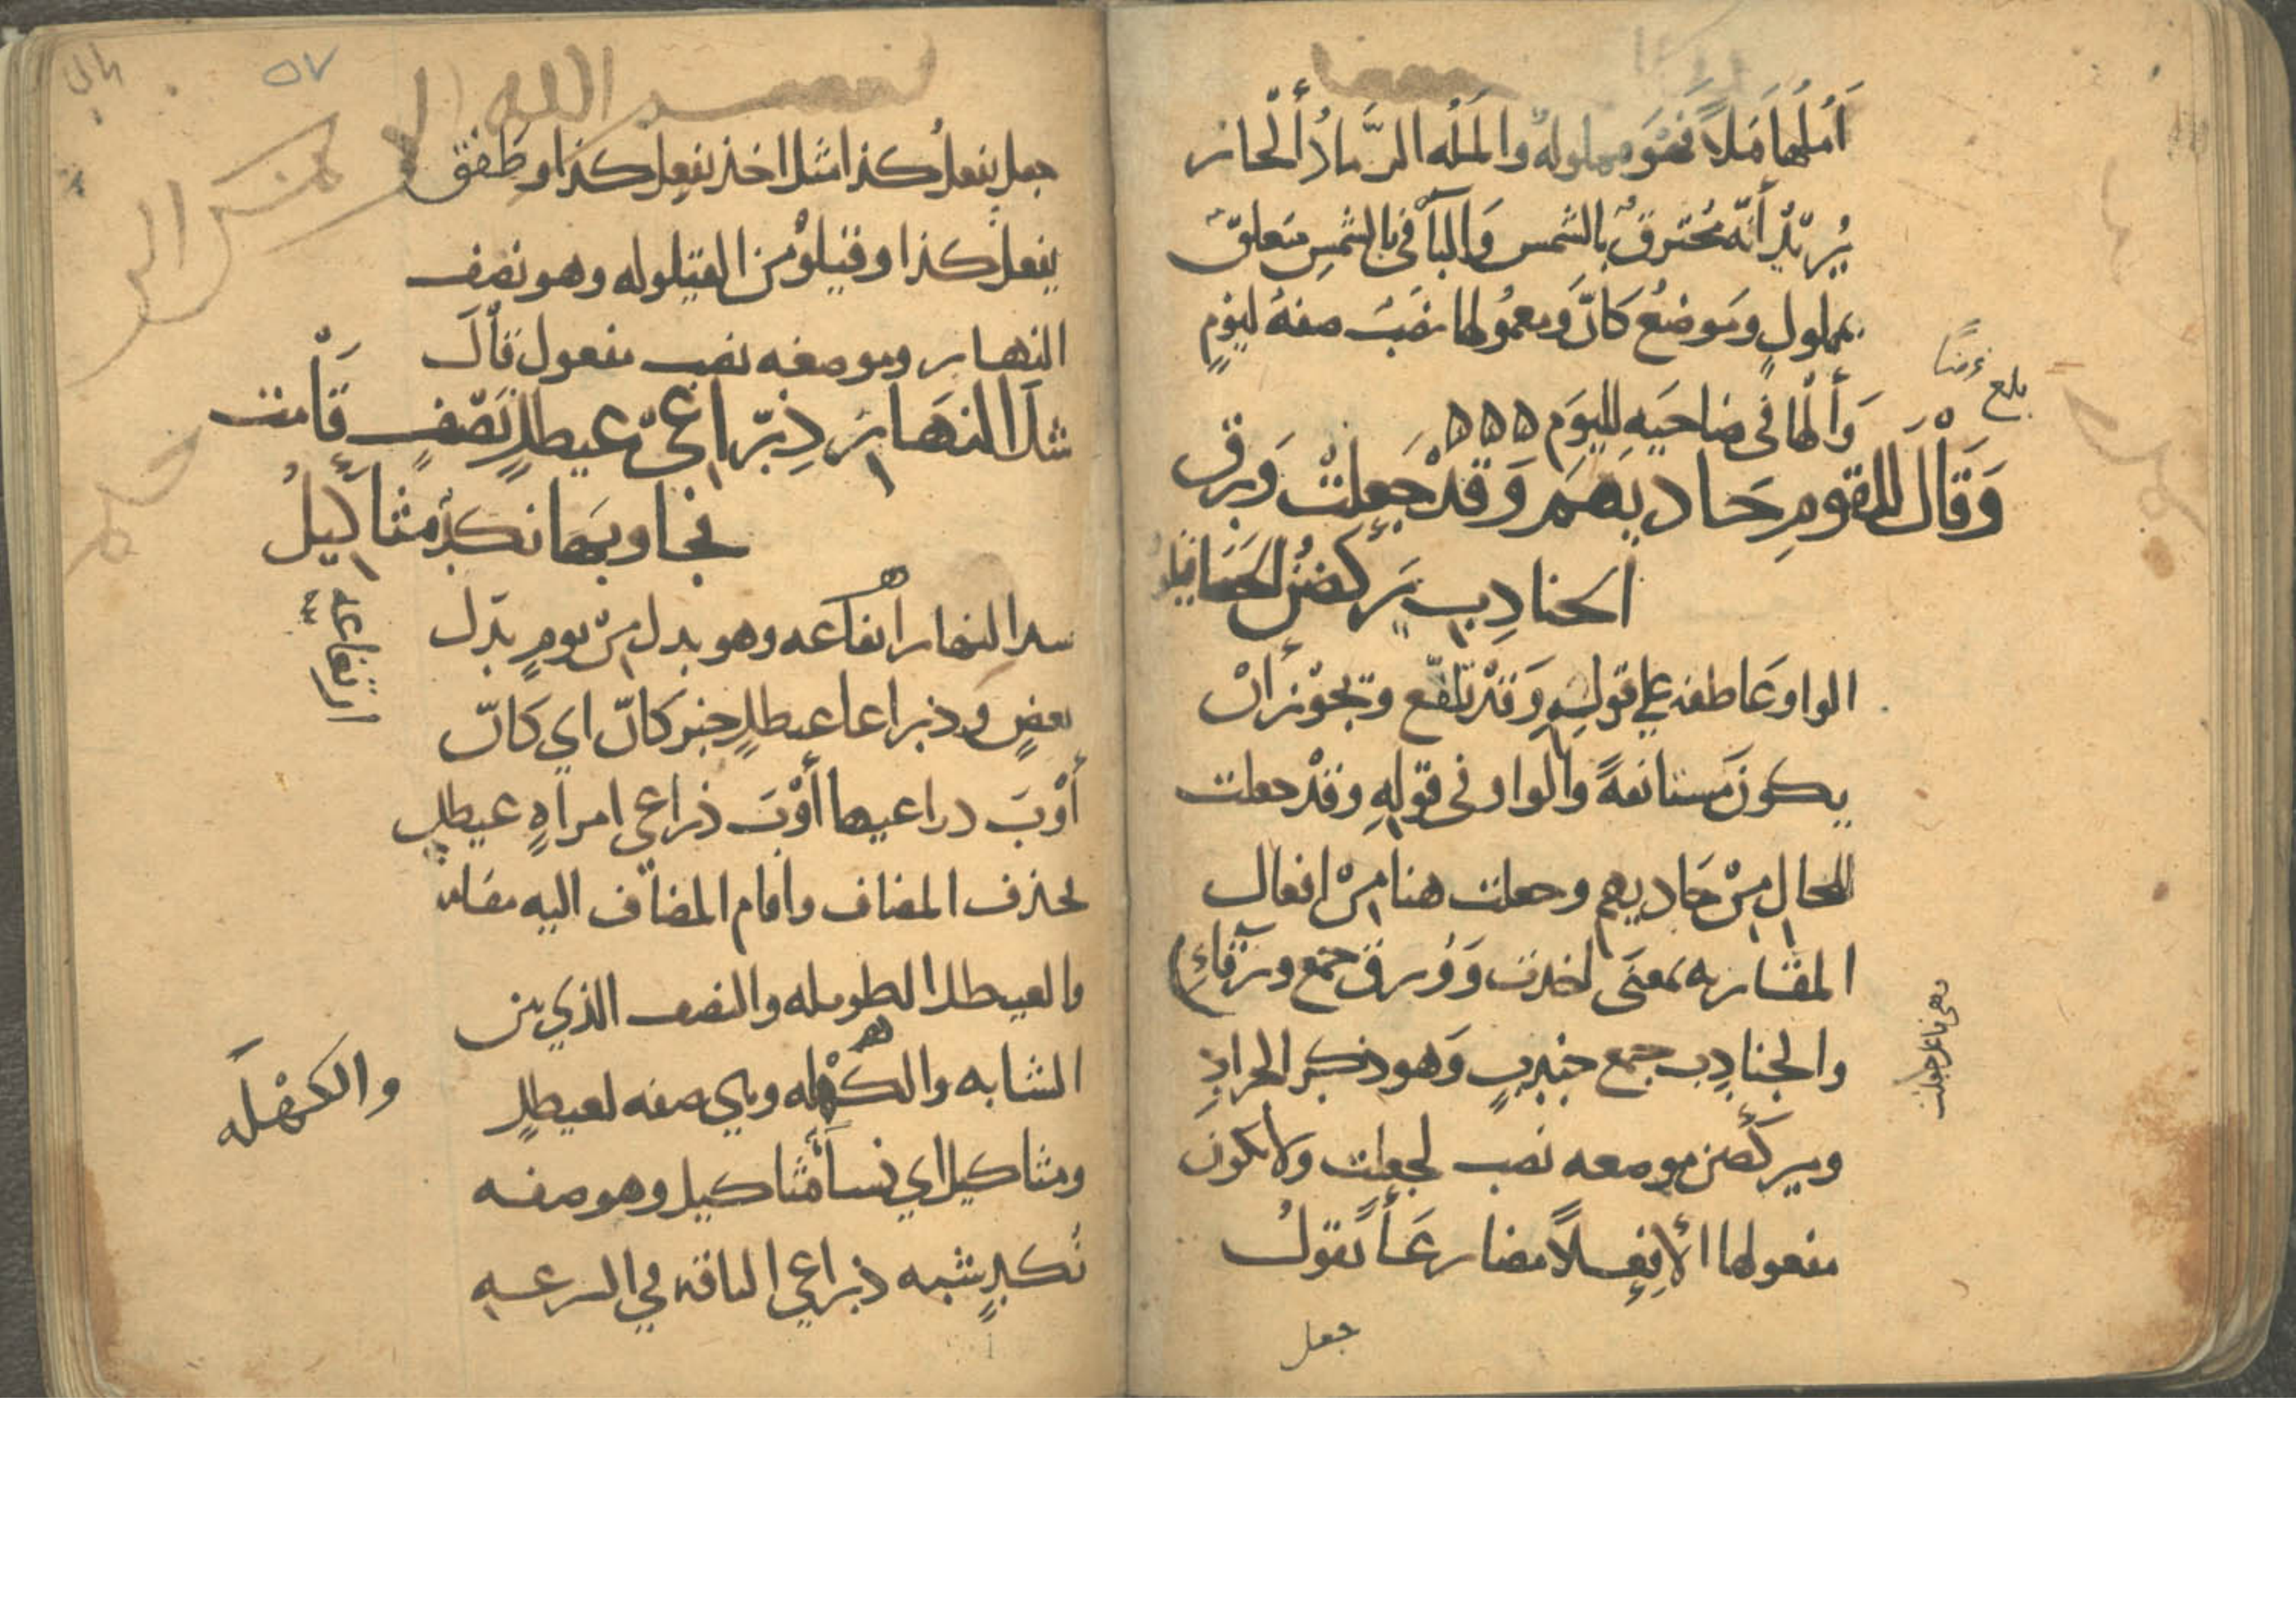 اَمُلُّهَا مَلاًّ فهْوَ مملولةٌ والمَلّه الرَّمادُ الحار
يُريْدُ أنّه مُحْتَرقٌ بالشمس وَالبآ في بالشمْسِ متعلقٌ
بمملولٍ وموضعُ كأنّ ومعمُولها نصَبٌ صفةُ ليَوْمٍ
بلغ عرضًا
وَألها في ضاحيَه لليوَم ۵۵۵
وَقَاْلَ للقومِ حَاديهم وَقدْ جَعِلَتْ وُرق
الجنادِبِ يَركُضْنَ الحَصَا قيلو
الواو عَاطفه على قولِهِ وَقدْ تلفّع وَيجوْز أنْ
يكونَ مستانفةً والواو في قولِهِ وقدْ جعلت
للحال مِنْ حَاديهم وجعلت هنا مِنْ افعال
المقاربه بمعنَى اخذت وَوُرق جمع ورْقآءِ
وهي فاعل جعلت
والجنادِب جمع جندبٍ وَهو ذكر الجرادِ
ويركُضن موضعه نصب لجعلت ولا يكونَ
مفعولها الاّ فعلاً مضارعاً تقولُ
جعل
٥٧
بسم الله الرحمن الر
جعل يفعلُ كذا مثل اخذ يفعل كذا وطفق
يفعلُ كذا وقيلوْ من القيلوله وهو نصف
النهار وموضعه نصب مفعول قاْلَ
شدّ النهَار ذِرَاعَيْ عيطلٍ نَصَفٍ قَاْمت
فجاوبَها نكدٌ مثاكيلُ
شد النهار ارتفاعه وهو بدل مِنْ يومٍ بدَل
ارتفاعه
بعضٍ وذراعا عيطلٍ خبر كانّ اي كانّ
أوْبَ ذراعيها أوْبَ ذراعي امراةٍ عيطلٍ
فحذف المضاف واقام المضاف اليه مقامه
والعيطل الطويله والنصف الذي بين
الشابه والكهله وهي صفه لعيطلٍ
والكهْلَه
ومثاكيل اي نسآ مثاكيل وهو صفه
نُكدٍ شبه ذراعي الناقه في السرعه